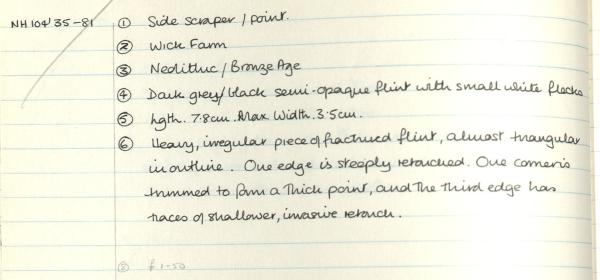 NH104'35-81 ① Side scraper / point.
② Wick Farm
③ Neolithic / Bronze Age
④ Dark grey/black semi-opaque flint with small white flecks
⑤ lgth. 7.8cm. Max Width. 3.5cm.
⑥ Heavy, irregular piece of fractured flint, almost triangular
in outline. One edge is steeply retouched. One corner is
trimmed to form a thick point, and the third edge has
traces of shallower, invasive retouch.
⑧ £1-50